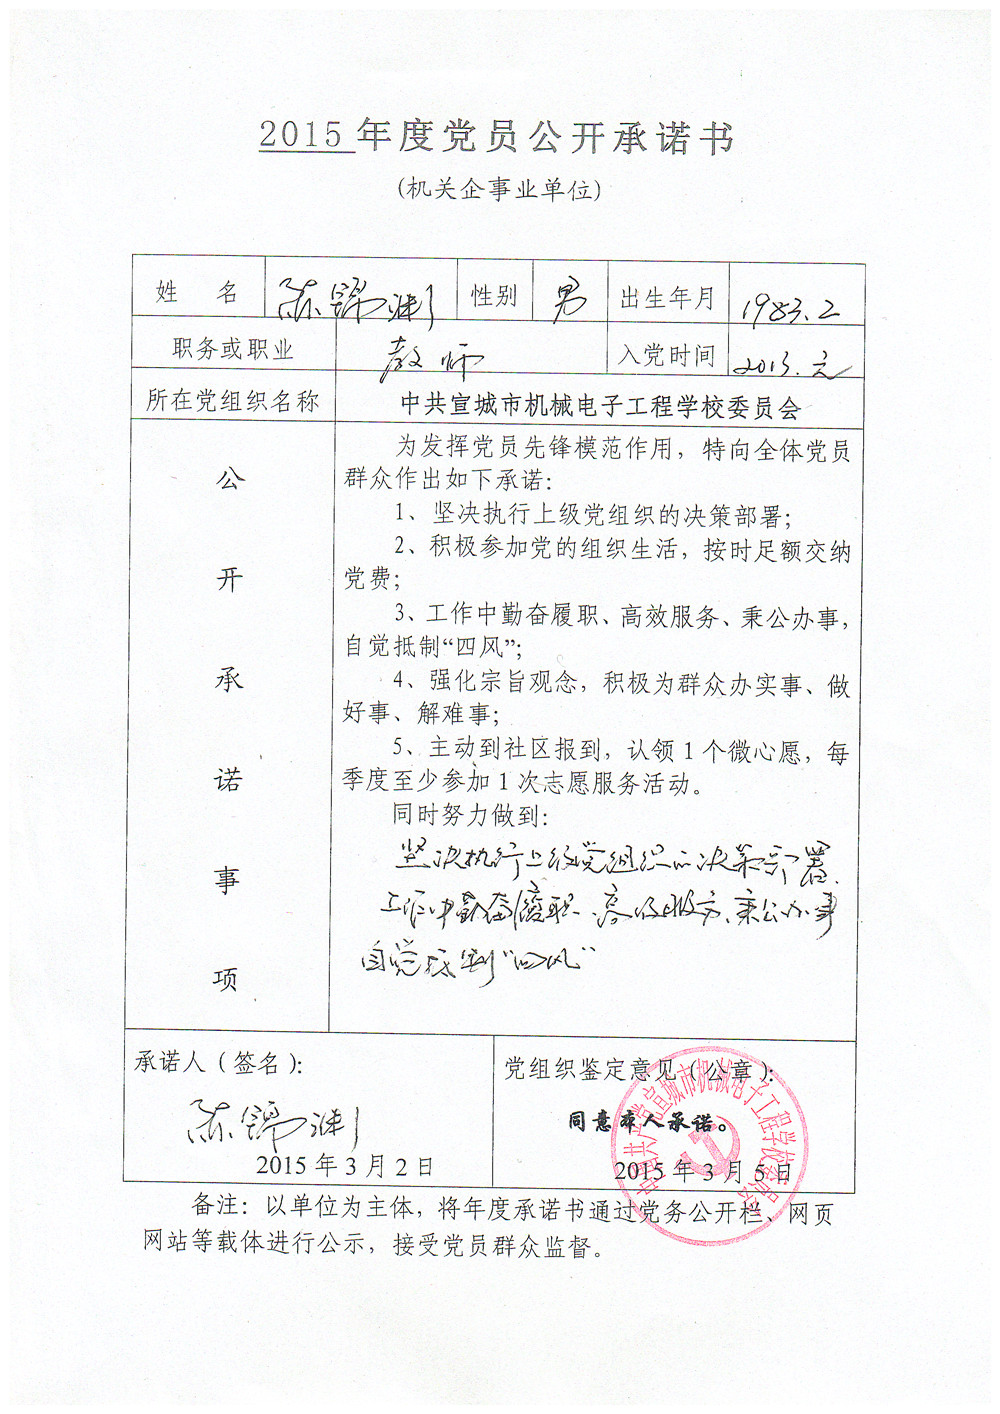 2015 年度党员公开承诺书
(机关企事业单位)
姓 名 陈锦渊 性别 男 出生年月 1983.2
职务或职业 教师 入党时间 2013.元
所在党组织名称 中共宣城市机械电子工程学校委员会
公开承诺事项
为发挥党员先锋模范作用，特向全体党员
群众作出如下承诺：
1、坚决执行上级党组织的决策部署；
2、积极参加党的组织生活，按时足额交纳
党费；
3、工作中勤奋履职、高效服务、秉公办事，
自觉抵制“四风”；
4、强化宗旨观念，积极为群众办实事、做
好事、解难事；
5、主动到社区报到，认领 1 个微心愿，每
季度至少参加 1 次志愿服务活动。
同时努力做到：
坚决执行上级党组织的决策部署、
工作中勤奋履职、高效服务、秉公办事
自觉抵制“四风”
承诺人（签名）：
陈锦渊
2015 年 3 月 2 日
党组织鉴定意见（公章）：
同意本人承诺。
2015 年 3 月 5 日
中国共产党宣城市机械电子工程学校委员会
备注：以单位为主体，将年度承诺书通过党务公开栏、网页
网站等载体进行公示，接受党员群众监督。